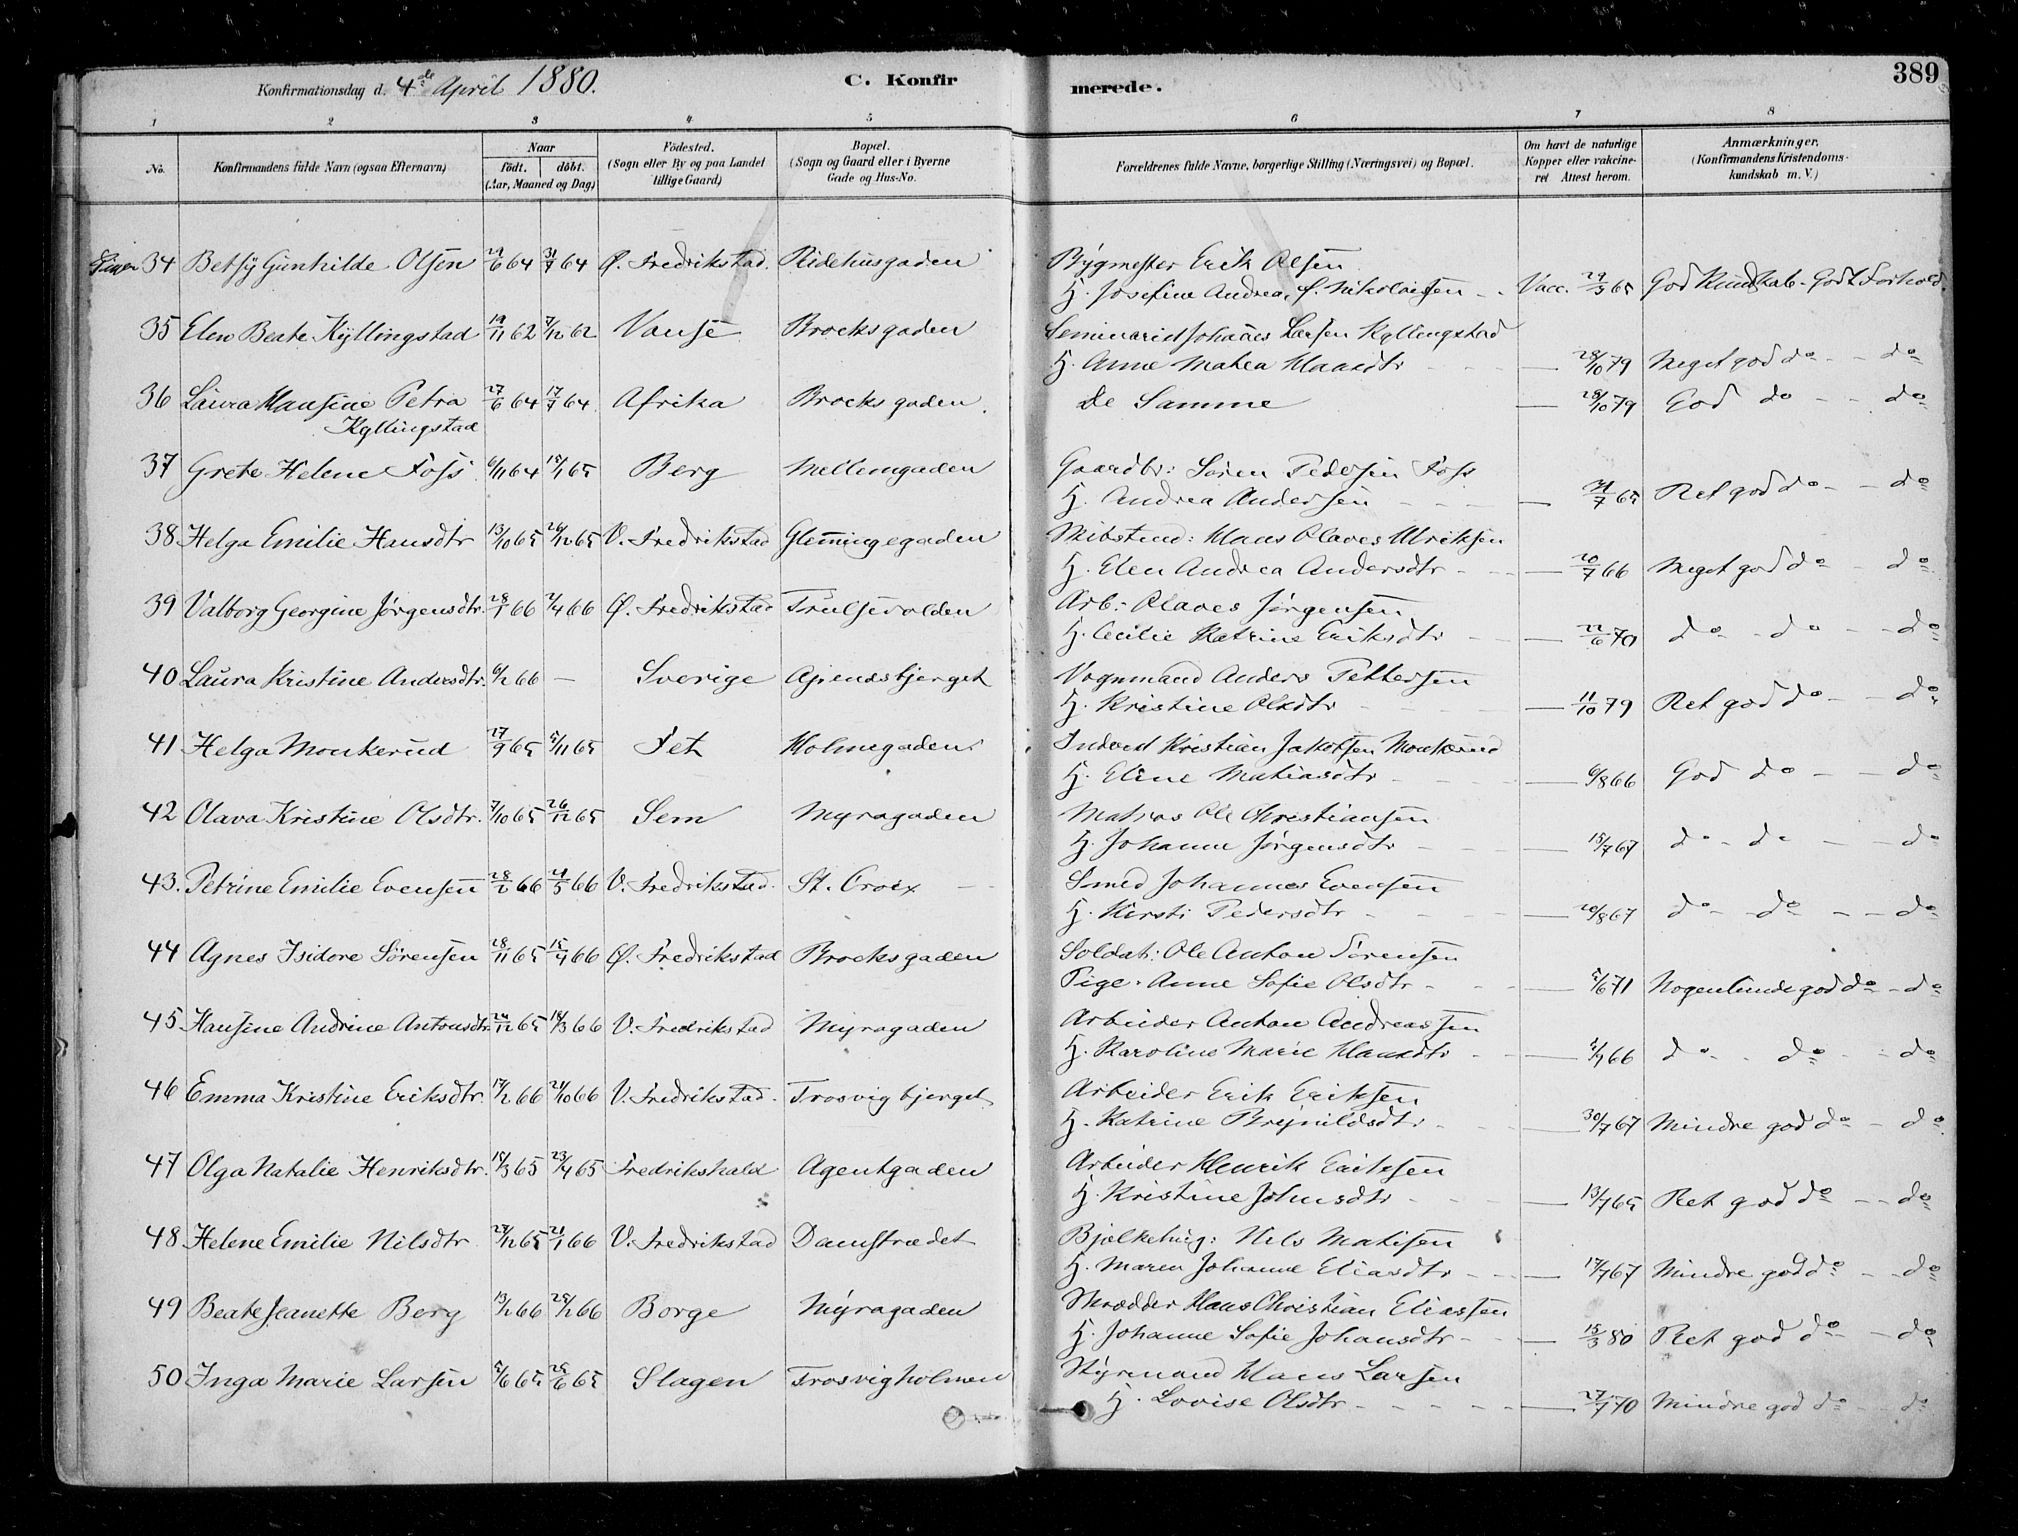 Konfirmationsdag d. 4de April 1880.
C. Konfirmerede.
389
1 2 3 4 5 6 7 8
No.
Konfirmandens fulde Navn (ogsaa Efternavn)
Naar
födt. döbt.
(Aar, Maaned og Dag)
Födested.
(Sogn eller By og paa Landet
tillige Gaard)
Bopæl.
(Sogn og Gaard eller i Byerne
Gade og Hus-No.
Forældrenes fulde Navne, borgerlige Stilling (Næringsvei) og Bopæl.
Om havt de naturlige
Kopper eller vakcine-
ret Attest herom.
Anmærkninger.
(Konfirmandens Kristendoms-
kundskab m. V.)
34 Betsy Gunhilde Olsen 29/6 64 31/7 64 Ø. Fredrikstad. Ridehusgaden Bygmester Erik Olsen
H. Josefine Andrea, f. Nikolaisen Vacc. 29/5 65 God Kundskab. Godt Forhold.
35 Elen Beate Kyllingstad 19/11 62 7/12 62 Vanse Brocksgaden Seminarist Johanes Larsen Kyllingstad
H. Anne Matea Hansdtr — 28/10 79 Meget god do — do
36 Laura Hansine Petra 27/6 64 17/7 64 Afrika Brocksgaden. De Samme — 28/10 79 God do — do
Kyllingstad
37 Grete Helene Foss 6/11 64 15/1 65 Berg Mellemgaden Gaardbr: Søren Pedersen Foss
H. Andrea Andersen — 31/7 65 Ret god do — do
38 Helga Emilie Hansdtr 13/10 65 26/12 65 V. Fredrikstad Glemmingegaden Skibstmd: Hans Olaves Ulriksen
H. Elen Andrea Andersdtr — 20/7 66 Meget god do — do
39 Valborg Georgine Jørgensdtr. 28/1 66 2/4 66 Ø. Fredrikstad Trulsevolden Arb: Olaves Jørgensen
H. Cecilie Katrine Eriksdtr — 22/6 70 do — do — do
40 Laura Kristine Andersdtr. 6/2 66 — Sverige Apenesbjerget Vognmand Anders Pettersen
H. Kristine Olsdtr — 11/10 79 Ret god do — do
41 Helga Monkerud 17/9 65 5/11 65 Fet Holmegaden Inderst Kristian Jakobsen Monkerud
H. Eline Matiasdtr — 6/8 66 God do — do
42 Olava Kristine Olsdtr. 7/10 65 26/12 65 Sem Myragaden Matros Ole Christiansen
H. Johanne Jørgensdtr — 15/7 67 do — do — do
43. Petrine Emilie Evensen 28/2 66 21/5 66 V. Fredrikstad. St. Croix — Smed Johannes Evensen
H. Kirsti Pedersdtr — 20/8 67 do — do — do
44 Agnes Isidore Sørensen 28/11 65 15/4 66 Ø. Fredrikstad Brocksgaden Soldat: Ole Anton Sørensen
Pige. Anne Sofie Olsdtr — 5/6 71 Nogenlunde god do — do
45 Hansine Andrine Antonsdtr 24/12 65 18/3 66 V. Fredrikstad Myragaden Arbeider Anton Andreassen
H. Karoline Marie Hansdtr — 5/7 66 do — do — do
46 Emma Kristine Eriksdtr. 17/2 66 21/10 66 V. Fredrikstad. Trosvigbjerget Arbeider Erik Eriksen
H. Katrine Brynildsdtr — 30/7 67 Mindre god do — do
47 Olga Natalie Henriksdtr. 15/3 65 23/4 65 Fredrikshald Agentgaden Arbeider Henrik Eriksen
H. Kristine Johnsdtr — 13/7 65 Ret god do — do
48 Helene Emilie Nilsdtr. 24/12 65 21/1 66 V. Fredrikstad Damstrædet Bjelkehug: Nils Matisen
H. Maren Johanne Eliasdtr — 17/7 67 Mindre god do — do
49 Beate Jeanette Borg 13/2 66 25/2 66 Borge Myragaden Skrædder Hans Christian Eliassen
H. Johanne Sofie Johansdtr — 15/3 80 Ret god do — do
50 Inga Marie Larsen 5/6 65 25/6 65 Slagen Trosvigholmen Styrmand Hans Larsen
H. Lovise Olsdtr — 27/7 70 Mindre god do — do